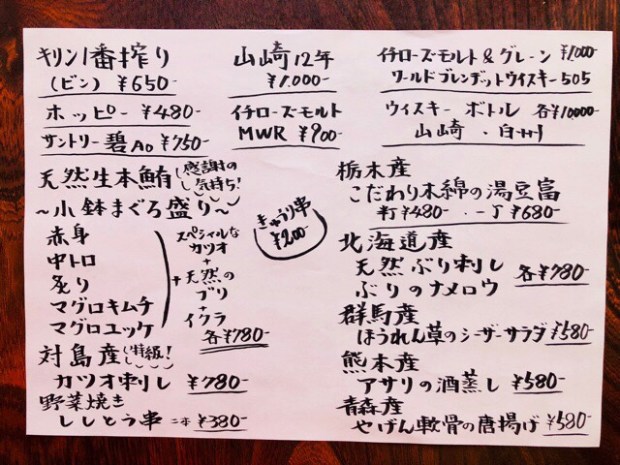 キリン一番搾り
(ビン) ¥650-
ホッピー ¥480-
サントリー碧Ao ¥750-
山崎12年
¥1.000-
イチローズモルト
MWR ¥900-
イチローズ・モルト & グレーン ¥1,000-
ワールドブレンデットウイスキー505
ウィスキー ボトル 各¥10000-
山崎 . 白州
天然生本鮪 感謝の気持ち!
〜小鉢まぐろ盛り〜
赤身
中トロ
炙り
マグロキムチ
マグロユッケ
スペシャルな
カツオ
+
天然の
ブリ
+
イクラ
各¥780-
きゅうり串
¥200-
対島産 特級!
カツオ刺し ¥780-
野菜焼き
ししとう串 二本 ¥380-
栃木産
こだわり木綿の湯豆富
半丁¥480- 一丁¥680-
北海道産
天然ぶり刺し
ぶりのナメロウ
各¥780-
群馬産
ほうれん草のシーザーサラダ ¥580-
熊本産
アサリの酒蒸し ¥580-
青森産
やげん軟骨の唐揚げ ¥580-